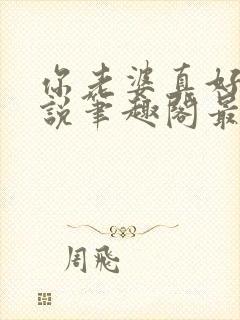 你老婆真好
说笔趣阁最
周飛